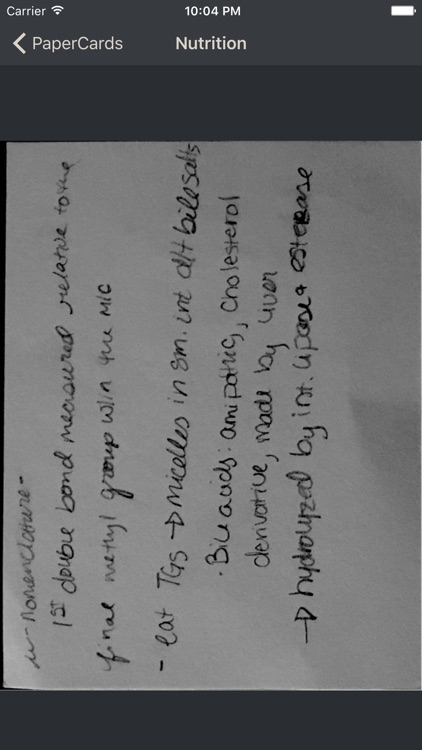 Carrier 10:04 PM
PaperCards Nutrition
ω-nomenclature-
1ST double bond measured relative to the
final methyl group w/in the MIC
- eat TGs → micelles in sm. int d/t bile salts
· Bile acids: amipathic, cholesterol
derivative, made by liver
→ hydrolyzed by int. lipase + esterase